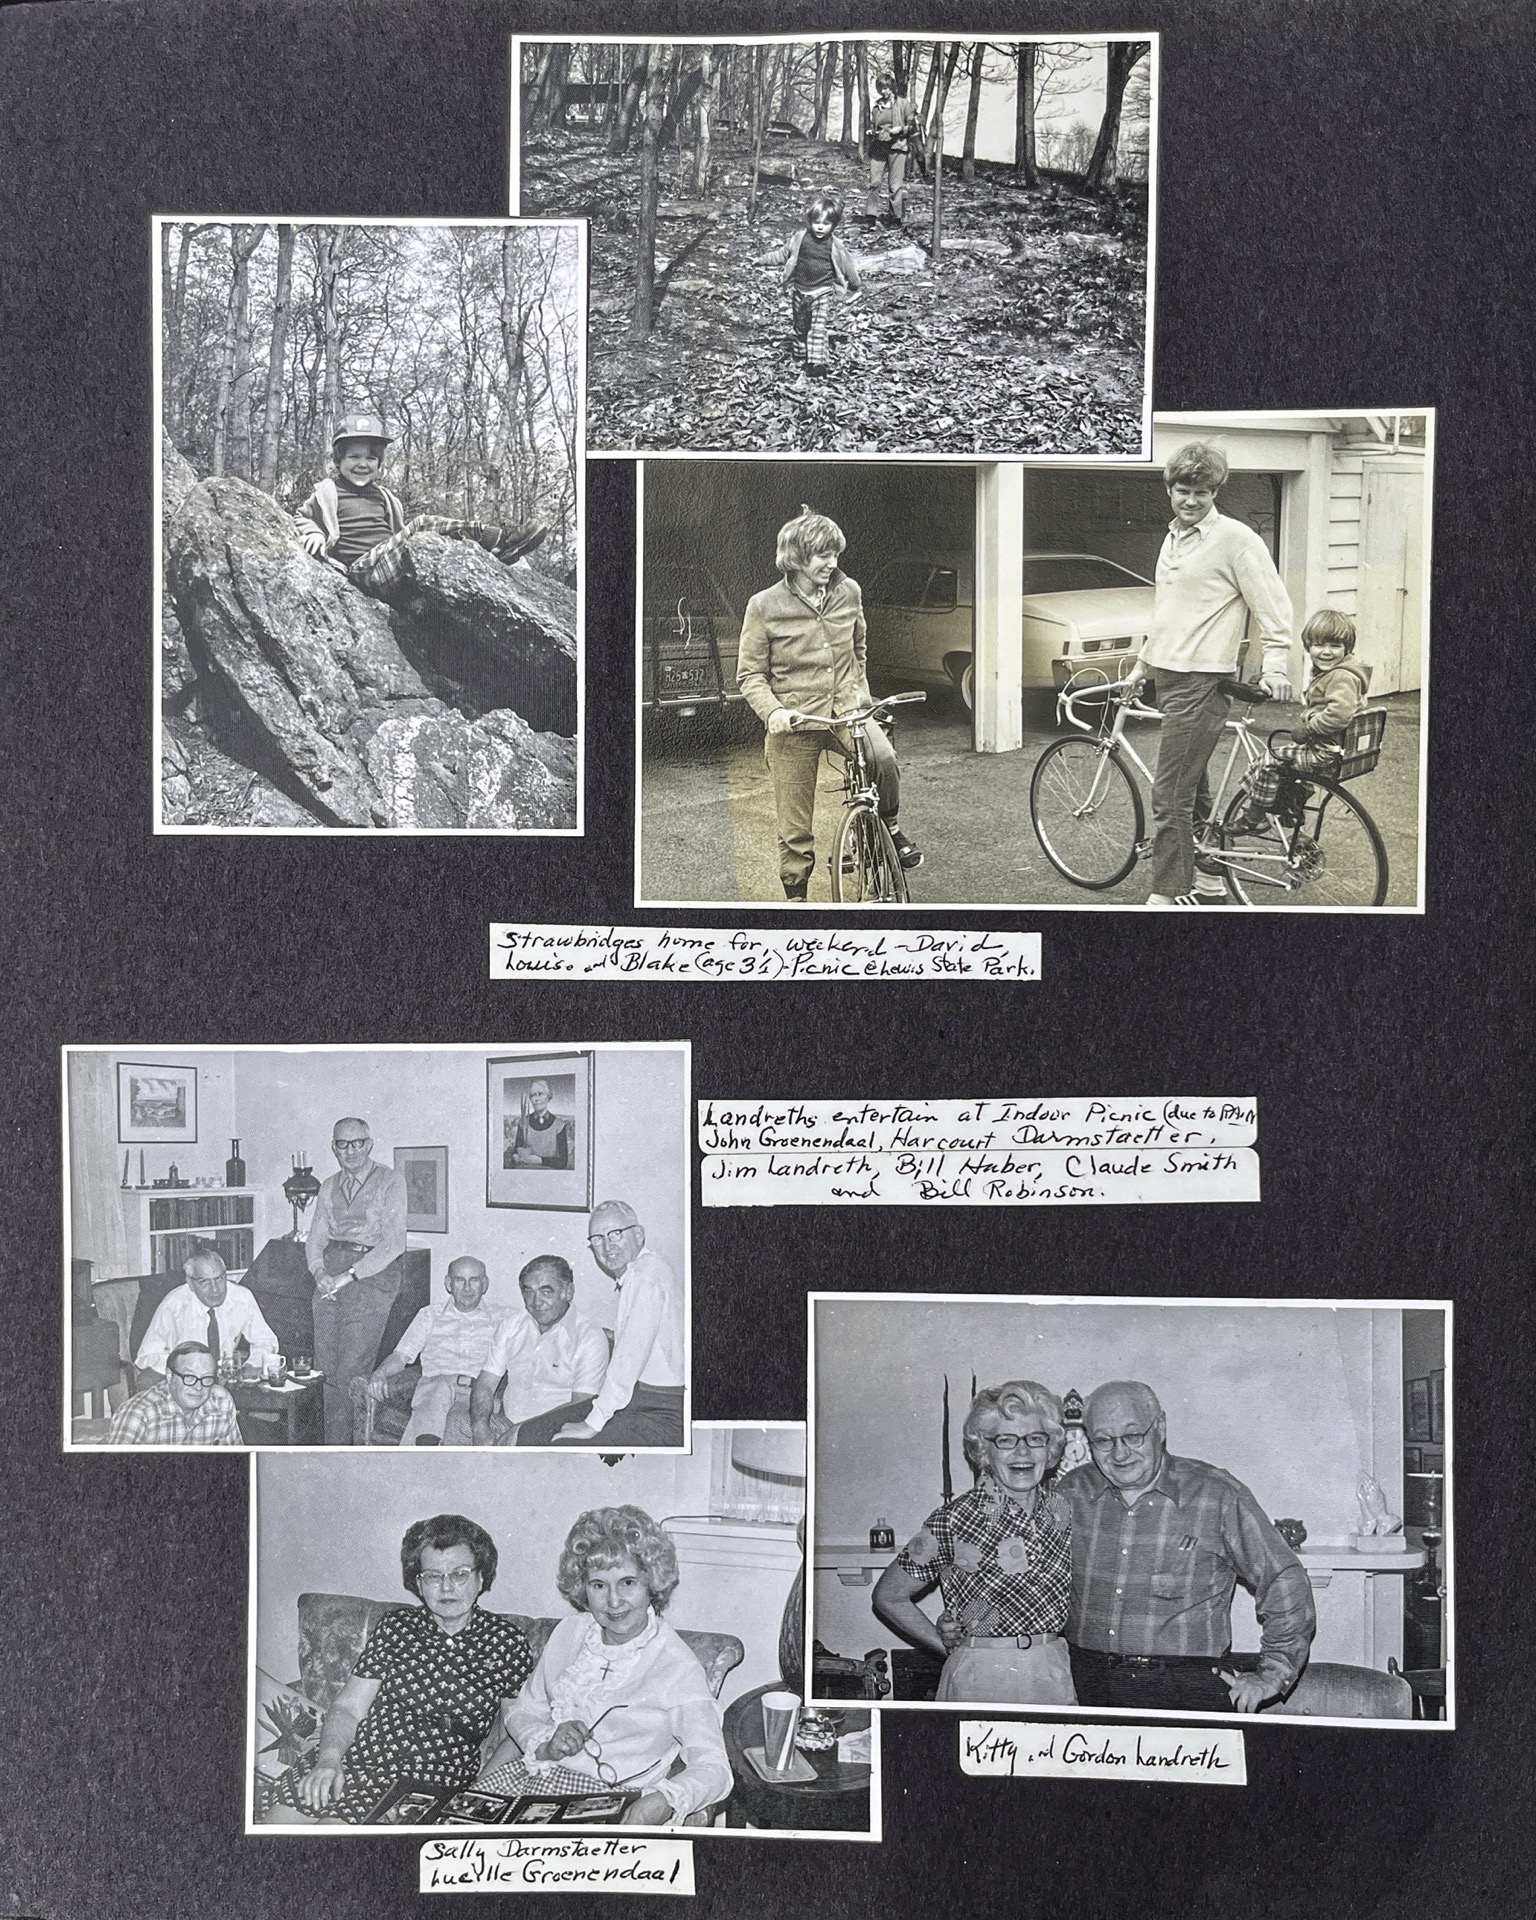 P
H25 532
Strawbridges home for, weekend - David,
Louise and Blake (age 3½) - Picnic @ Lewis State Park.
Landreths entertain at Indoor Picnic (due to RAIN
John Groenendaal, Harcourt Darmstaetter,
Jim Landreth, Bill Huber, Claude Smith
and Bill Robinson.
Kitty and Gordon Landreth
Sally Darmstaetter
Lucille Groenendaal